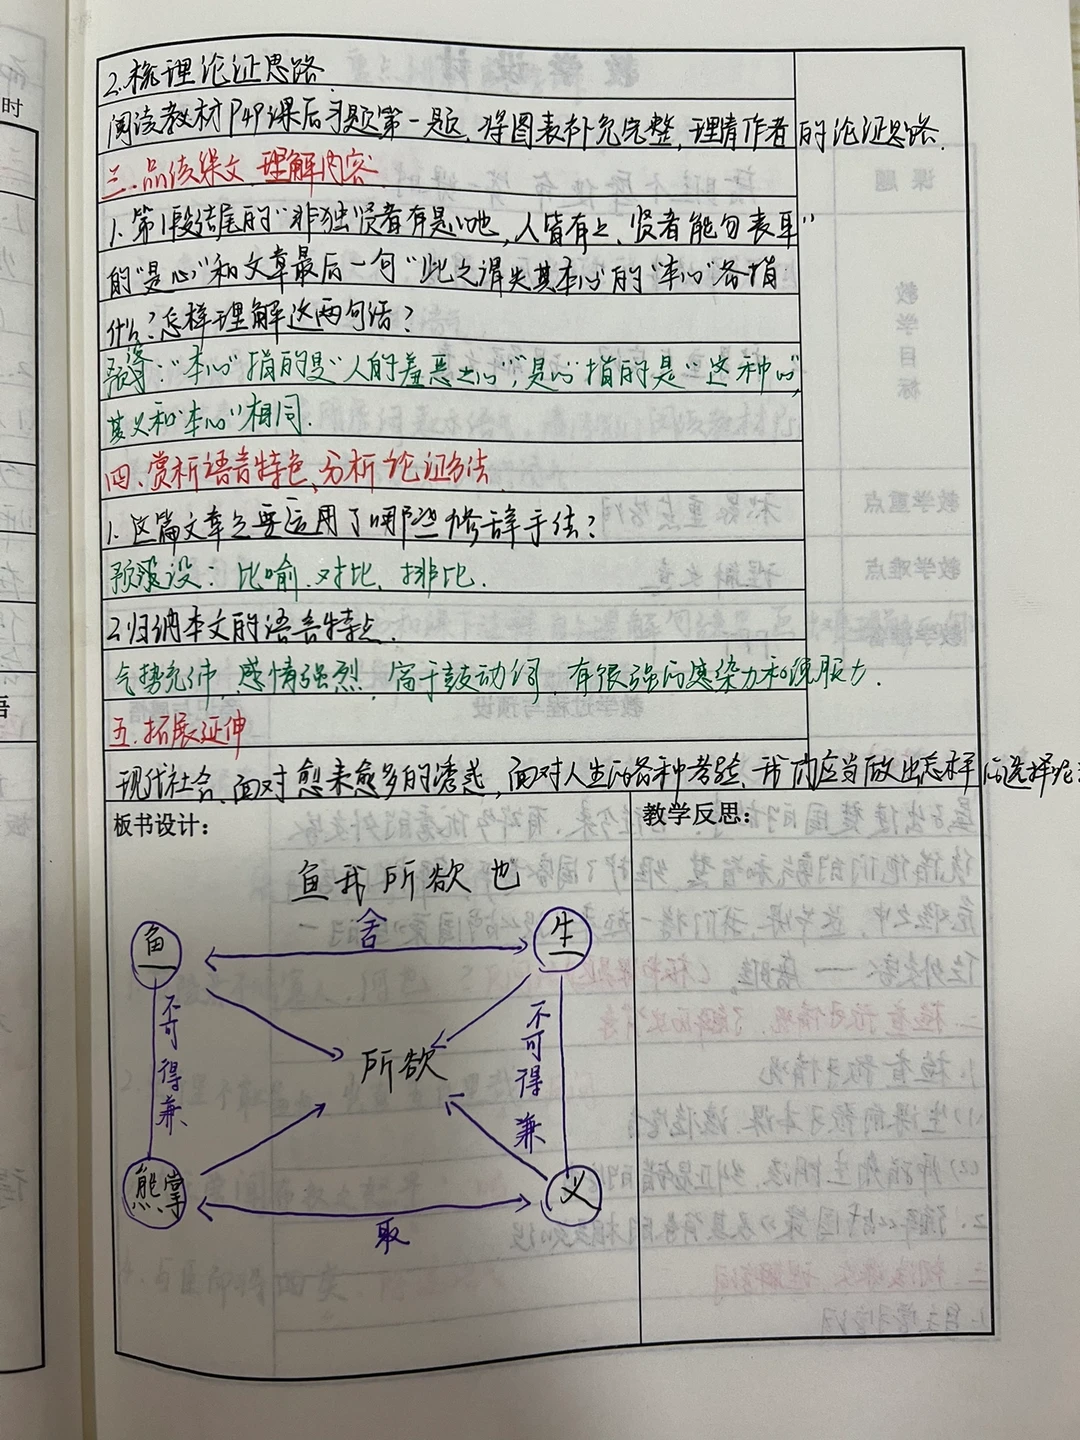 2.梳理论证思路
阅读教材P49课后习题第一题,将图表补充完整,理清作者的论证思路.
三.品读课文,理解内容
1.第1段结尾的“非独贤者有是心也,人皆有之,贤者能勿丧耳”
的“是心”和文章最后一句“此之谓失其本心”的“本心”各指
什么?怎样理解这两句话?
预设:“本心”指的是“人的羞恶之心”,“是心”指的是“这种心”,
其义和“本心”相同.
四、赏析语言特色,分析论证方法
1.这篇文章主要运用了哪些修辞手法?
预设:比喻、对比、排比.
2.归纳本文的语言特点.
气势充沛,感情强烈,富于鼓动性,有很强的感染力和说服力.
五.拓展延伸
现代社会,面对愈来愈多的诱惑,面对人生的各种考验,我们应当做出怎样的选择呢?
板书设计:
教学反思:
鱼我所欲也
鱼
舍
生
不可得兼
所欲
不可得兼
熊掌
取
义
时
语
板